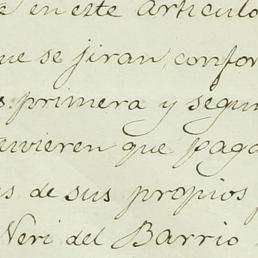 en este Articulo
que se jiran, confor
primera y segun
tuvieren que paga
as de sus propios
Neri del Barrio